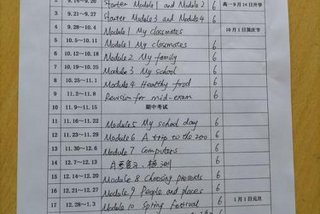 2 9.14-9.20 Starter Module 1 and Module 2 6 高一9月14日开学
3 9.21-9.27 Starter Module 3 and Module 4 6
4 9.28-10.4 Module 1 My classmates 6 10月1日国庆节
5 10.5-10.11 Module 1 My classmates 6
6 10.12-10.18 Module 2 My family 6
7 10.19-10.25 Module 3 My school 6
8 10.25-11.1 Module 4 Healthy food 6
9 11.2-11.8 Revision for mid-exam 6
10 11.9-11.15 期中考试
11 11.16-11.22 Module 5 My school day 6
12 11.23-11.29 Module 6 A trip to the zoo 6
13 11.30-12.6 Module 7 Computers 6
14 12.7-12.13 6
15 12.14-12.20 Module 8 Choosing presents 6
16 12.21-12.27 Module 9 People and places 6
17 12.28-1.3 Module 10 Spring festival 6 1月1日元旦